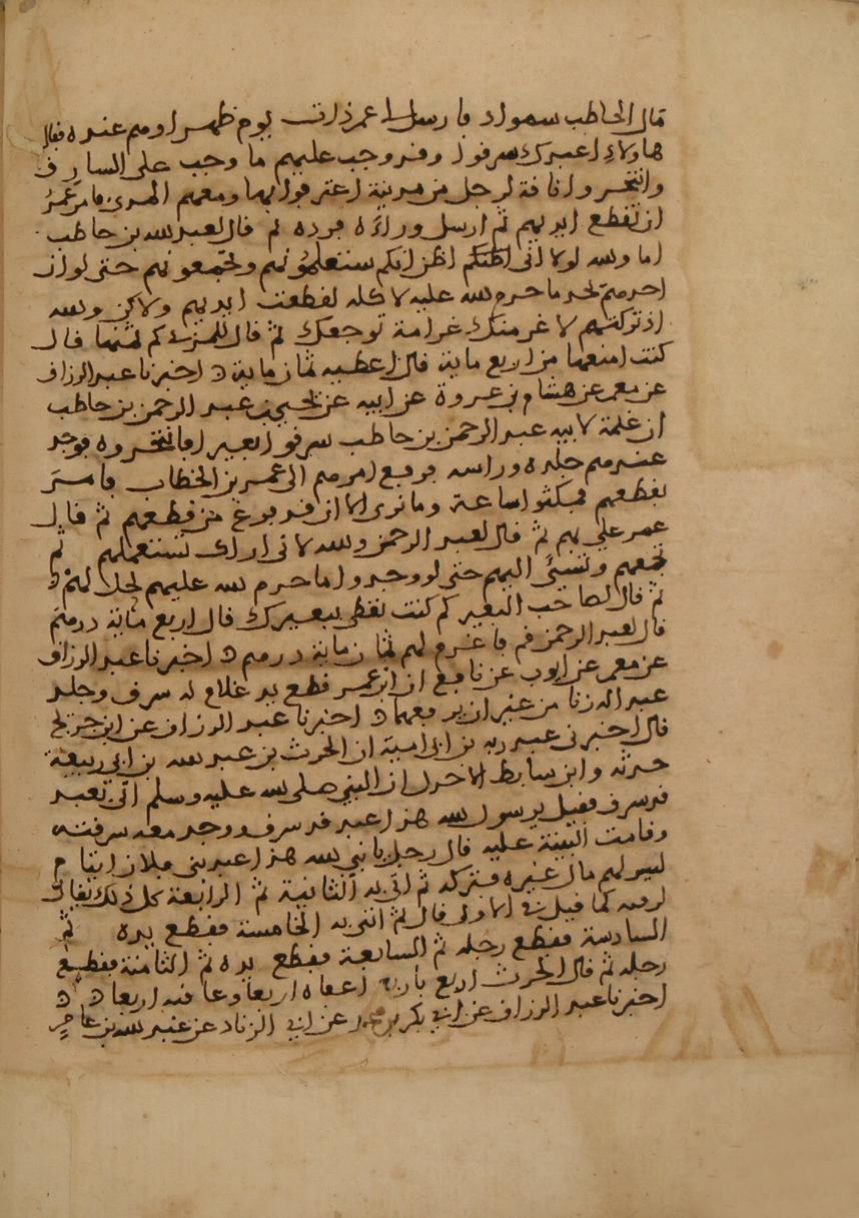 قال الحاطب سموا له فارسل الى عمر ذات يوم ظهرا وهم عنده فقال
هاولاء اعبدك سرقوا وقد وجب عليهم ما وجب على السارق
وانتحروا ناقة لرجل من مزينة اعترفوا بها ومعهم المزني فامر عمر
ان تقطع ايديهم ثم ارسل وراءه فرده ثم قال لعبد الله بن حاطب
اما والله لولا اني اظنكم انكم تستعملونهم وتجيعونهم حتى لو ان
احدهم يجد ما حرم الله عليه لاكله لقطعت ايديهم ولاكن والله
اذ تركتهم لاغرمنك غرامة توجعك ثم قال للمزني كم ثمنها قال
كنت امنعها من اربع ماية قال اعطيه ثمان ماية اخبرنا عبد الرزاق
عن معمر عن هشام بن عروة عن ابيه عن يحيى بن عبد الرحمن بن حاطب
ان غلمة لابيه عبد الرحمن بن حاطب سرقوا بعيرا فانتحروه فوجد
عندهم جلده وراسه فرفع امرهم الى عمر بن الخطاب فامر
بقطعهم فمكثوا ساعة وما نرى الا ان قد فرغ من قطعهم ثم قال
عمر علي بهم ثم قال لعبد الرحمن والله لاني اراك تستعملهم ثم
تجيعهم وتسيئ اليهم حتى لو وجدوا ما حرم الله عليهم لحل لهم
ثم قال لصاحب البعير كم كنت تعطى ببعيرك قال اربع ماية درهم
قال لعبد الرحمن قم فاغرم لهم ثمان ماية درهم اخبرنا عبد الرزاق
عن معمر عن ايوب عن نافع ان ابن عمر قطع يد غلام له سرق وجلد
عبدا له زنا من غير ان يرفعهما اخبرنا عبد الرزاق عن ابن جريج
قال اخبرني عبد ربه بن ابي امية ان الحرث بن عبد الله بن ابي ربيعة
حدثه وابن سابط الاحول ان النبي صلى الله عليه وسلم اتي بعبد
قد سرق فقيل يرسول الله هذا عبد قد سرق ووجد معه سرقته
وقامت البينة عليه قال رجل يا نبي الله هذا عبد بني فلان ايتام
ليس لهم مال غيره فتركه ثم اتي به الثانية ثم الرابعة كل ذلك يقال
له فيه كما قيل في الاولى قال ثم اتي به الخامسة فقطع يده ثم
السادسة فقطع رجله ثم السابعة فقطع يده ثم الثامنة فقطع
رجله ثم قال الحرث اربع باربع اعفاه اربعا وعاقبه اربعا
اخبرنا عبد الرزاق عن ابي بكر بن محمد عن ابي الزناد عن عبد الله بن عامر